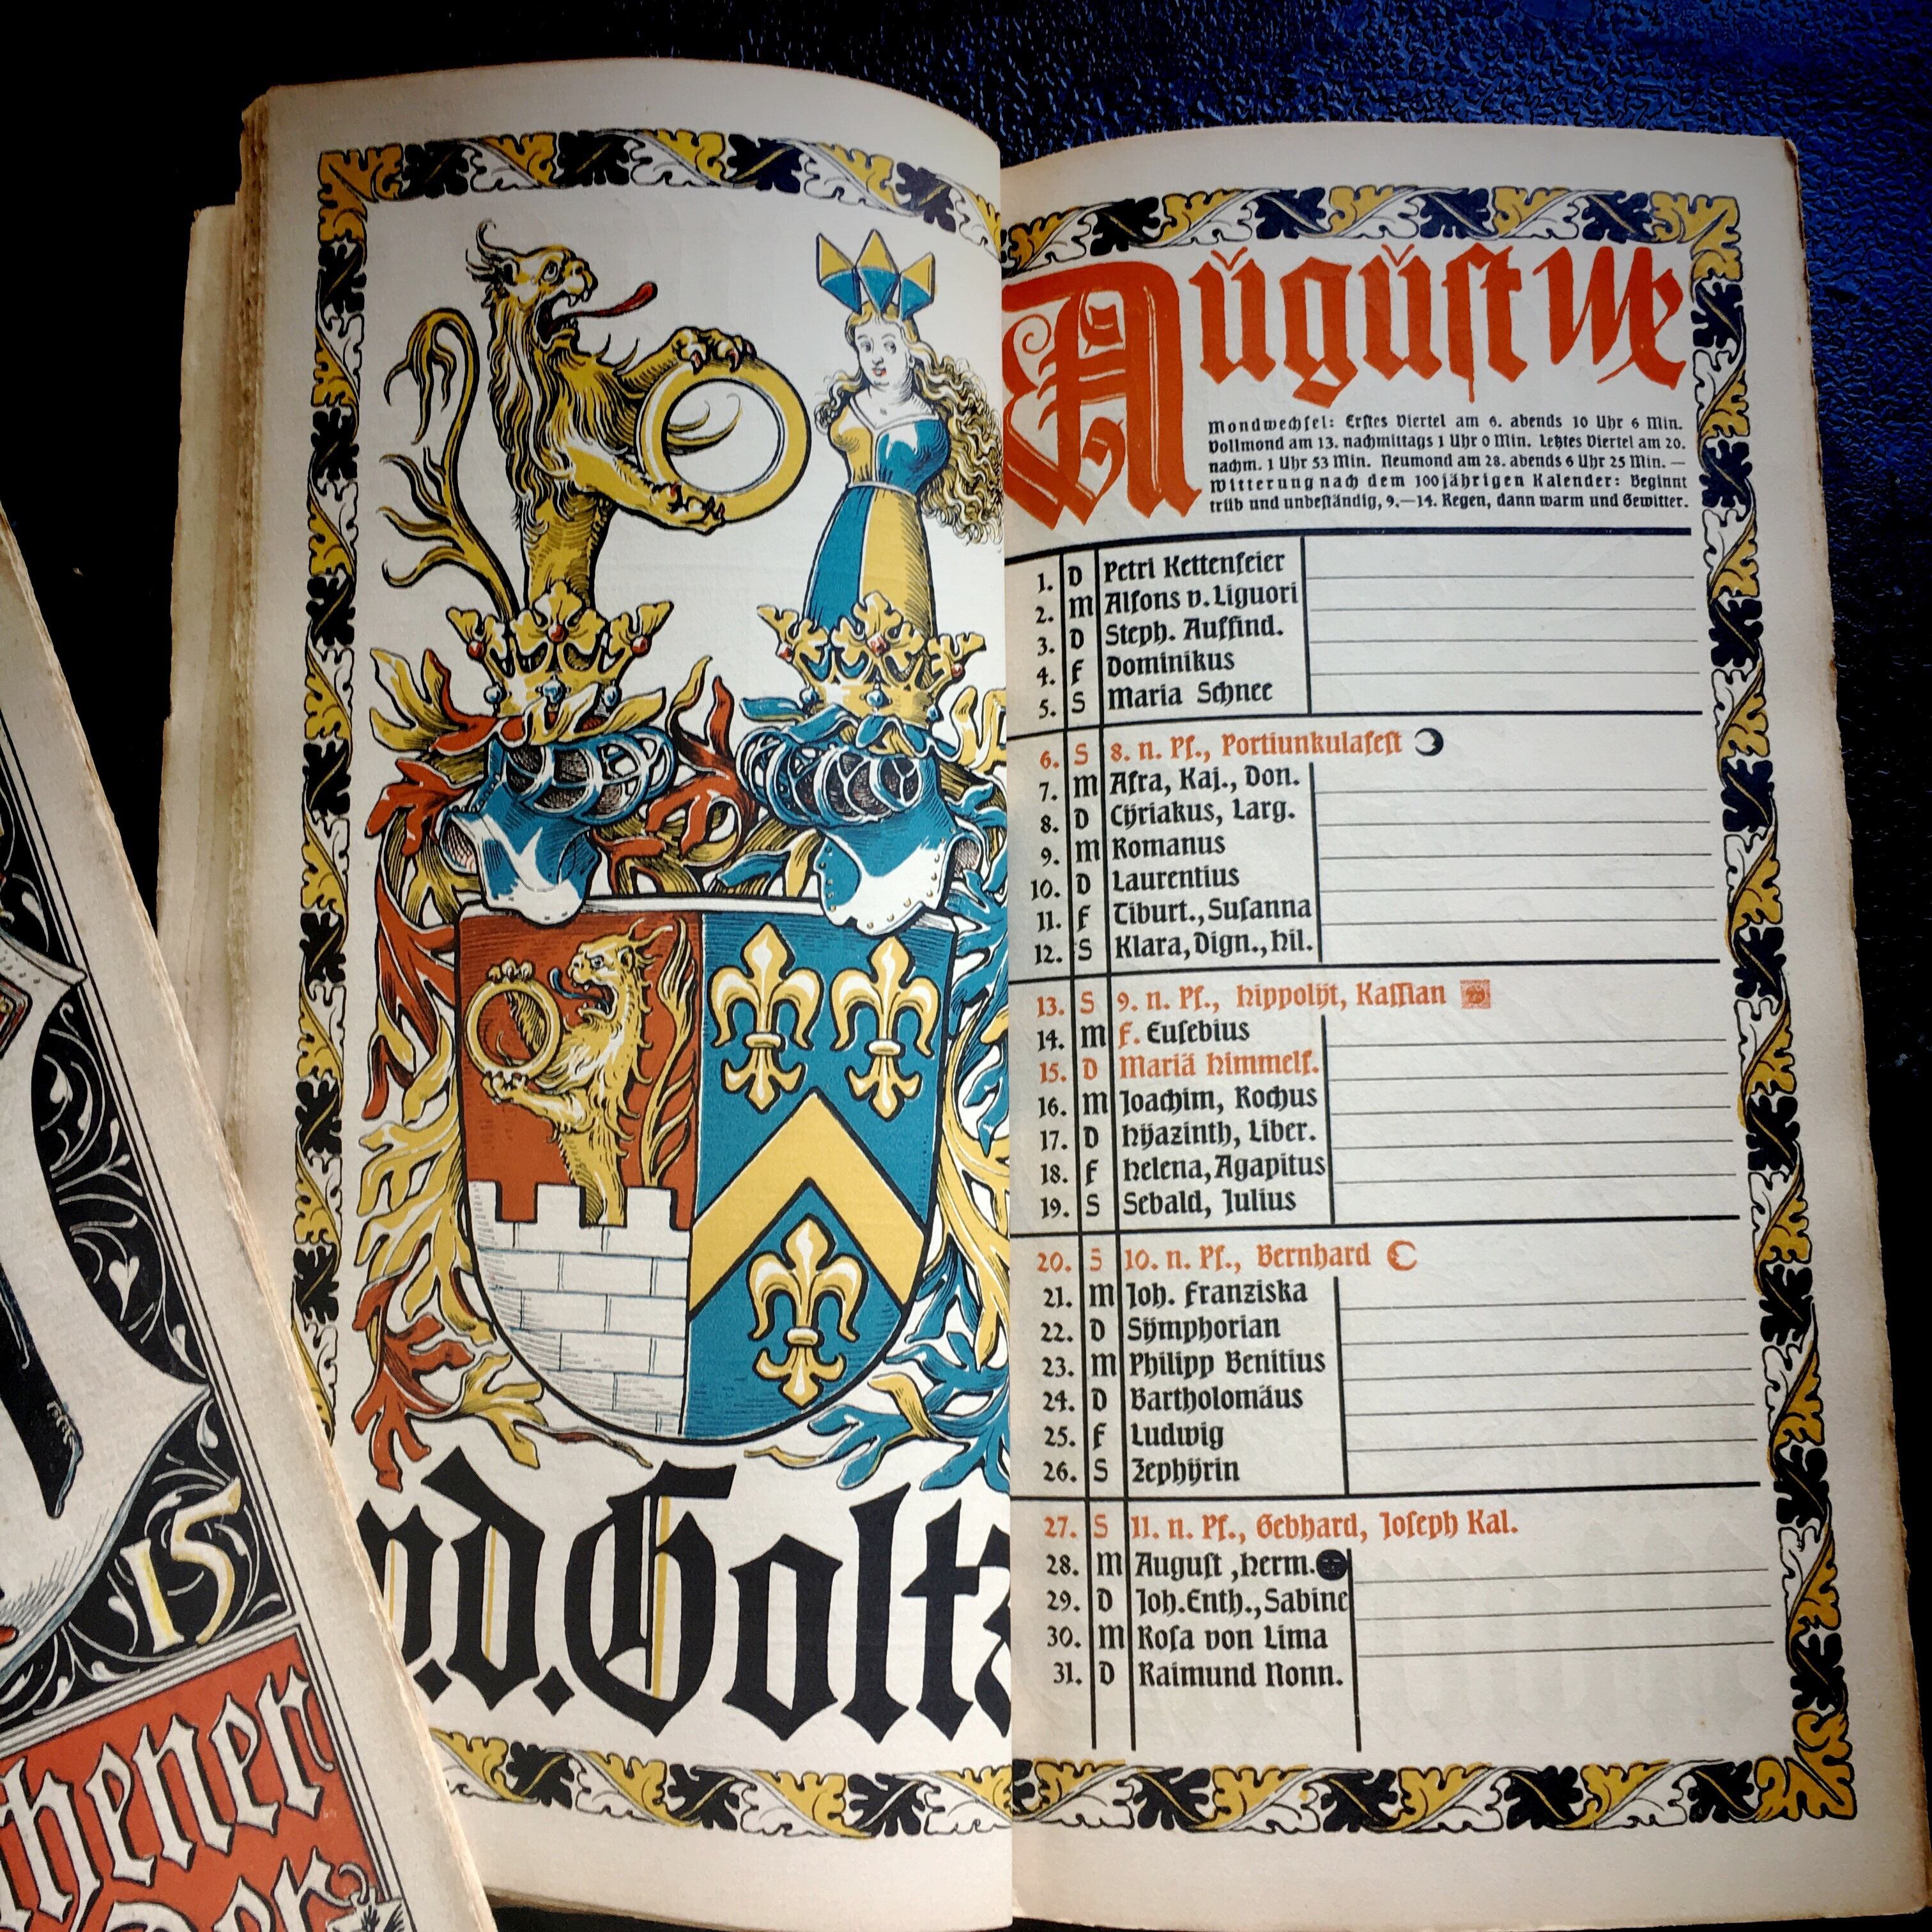 v.d. Goltz
August
Mondwechsel: Erstes Viertel am 6. abends 10 Uhr 6 Min.
Vollmond am 13. nachmittags 1 Uhr 0 Min. Letztes Viertel am 20.
nachm. 1 Uhr 53 Min. Neumond am 28. abends 6 Uhr 25 Min. —
Witterung nach dem 100jährigen Kalender: Beginnt
trüb und unbeständig, 9.—14. Regen, dann warm und Gewitter.
1. D Petri Kettenfeier
2. M Alfons v. Liguori
3. D Steph. Auffind.
4. F Dominikus
5. S Maria Schnee
6. S 8. n. Pf., Portiunkulafest
7. M Afra, Kaj., Don.
8. D Cÿriakus, Larg.
9. M Romanus
10. D Laurentius
11. F Tiburt., Susanna
12. S Klara, Dign., Hil.
13. S 9. n. Pf., Hippolÿt, Kassian
14. M F. Eusebius
15. D Mariä Himmelf.
16. M Joachim, Rochus
17. D Hÿazinth, Liber.
18. F Helena, Agapitus
19. S Sebald, Julius
20. S 10. n. Pf., Bernhard
21. M Joh. Franziska
22. D Sÿmphorian
23. M Philipp Benitius
24. D Bartholomäus
25. F Ludwig
26. S Zephÿrin
27. S 11. n. Pf., Gebhard, Joseph Kal.
28. M August, Herm.
29. D Joh. Enth., Sabine
30. M Rosa von Lima
31. D Raimund Nonn.
15
chener